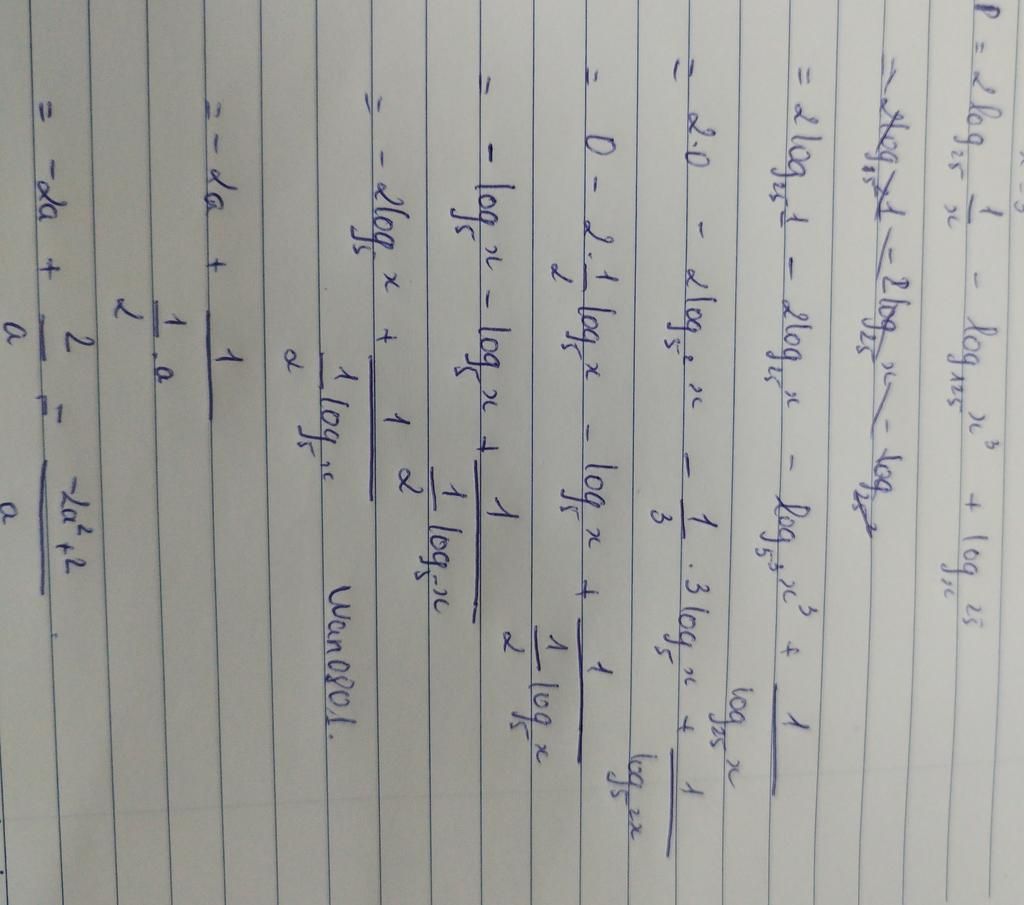 P = 2log₂₅ 1/x - log₁₂₅ x³ + logₓ 25
= 2log₂₅ 1 - 2log₂₅ x - log₅³ x³ + 1/(log₂₅ x)
= 2.0 - 2log₅² x - 1/3 . 3log₅ x + 1/(log₅² x)
= 0 - 2. 1/2 log₅ x - log₅ x + 1/(1/2 log₅ x)
= - log₅ x - log₅ x + 1/(1/2 log₅ x)
= - 2log₅ x + 1/(1/2 log₅ x)
Wan0801.
= - 2a + 1/(1/2 . a)
= - 2a + 2/a = (-2a² + 2)/a .